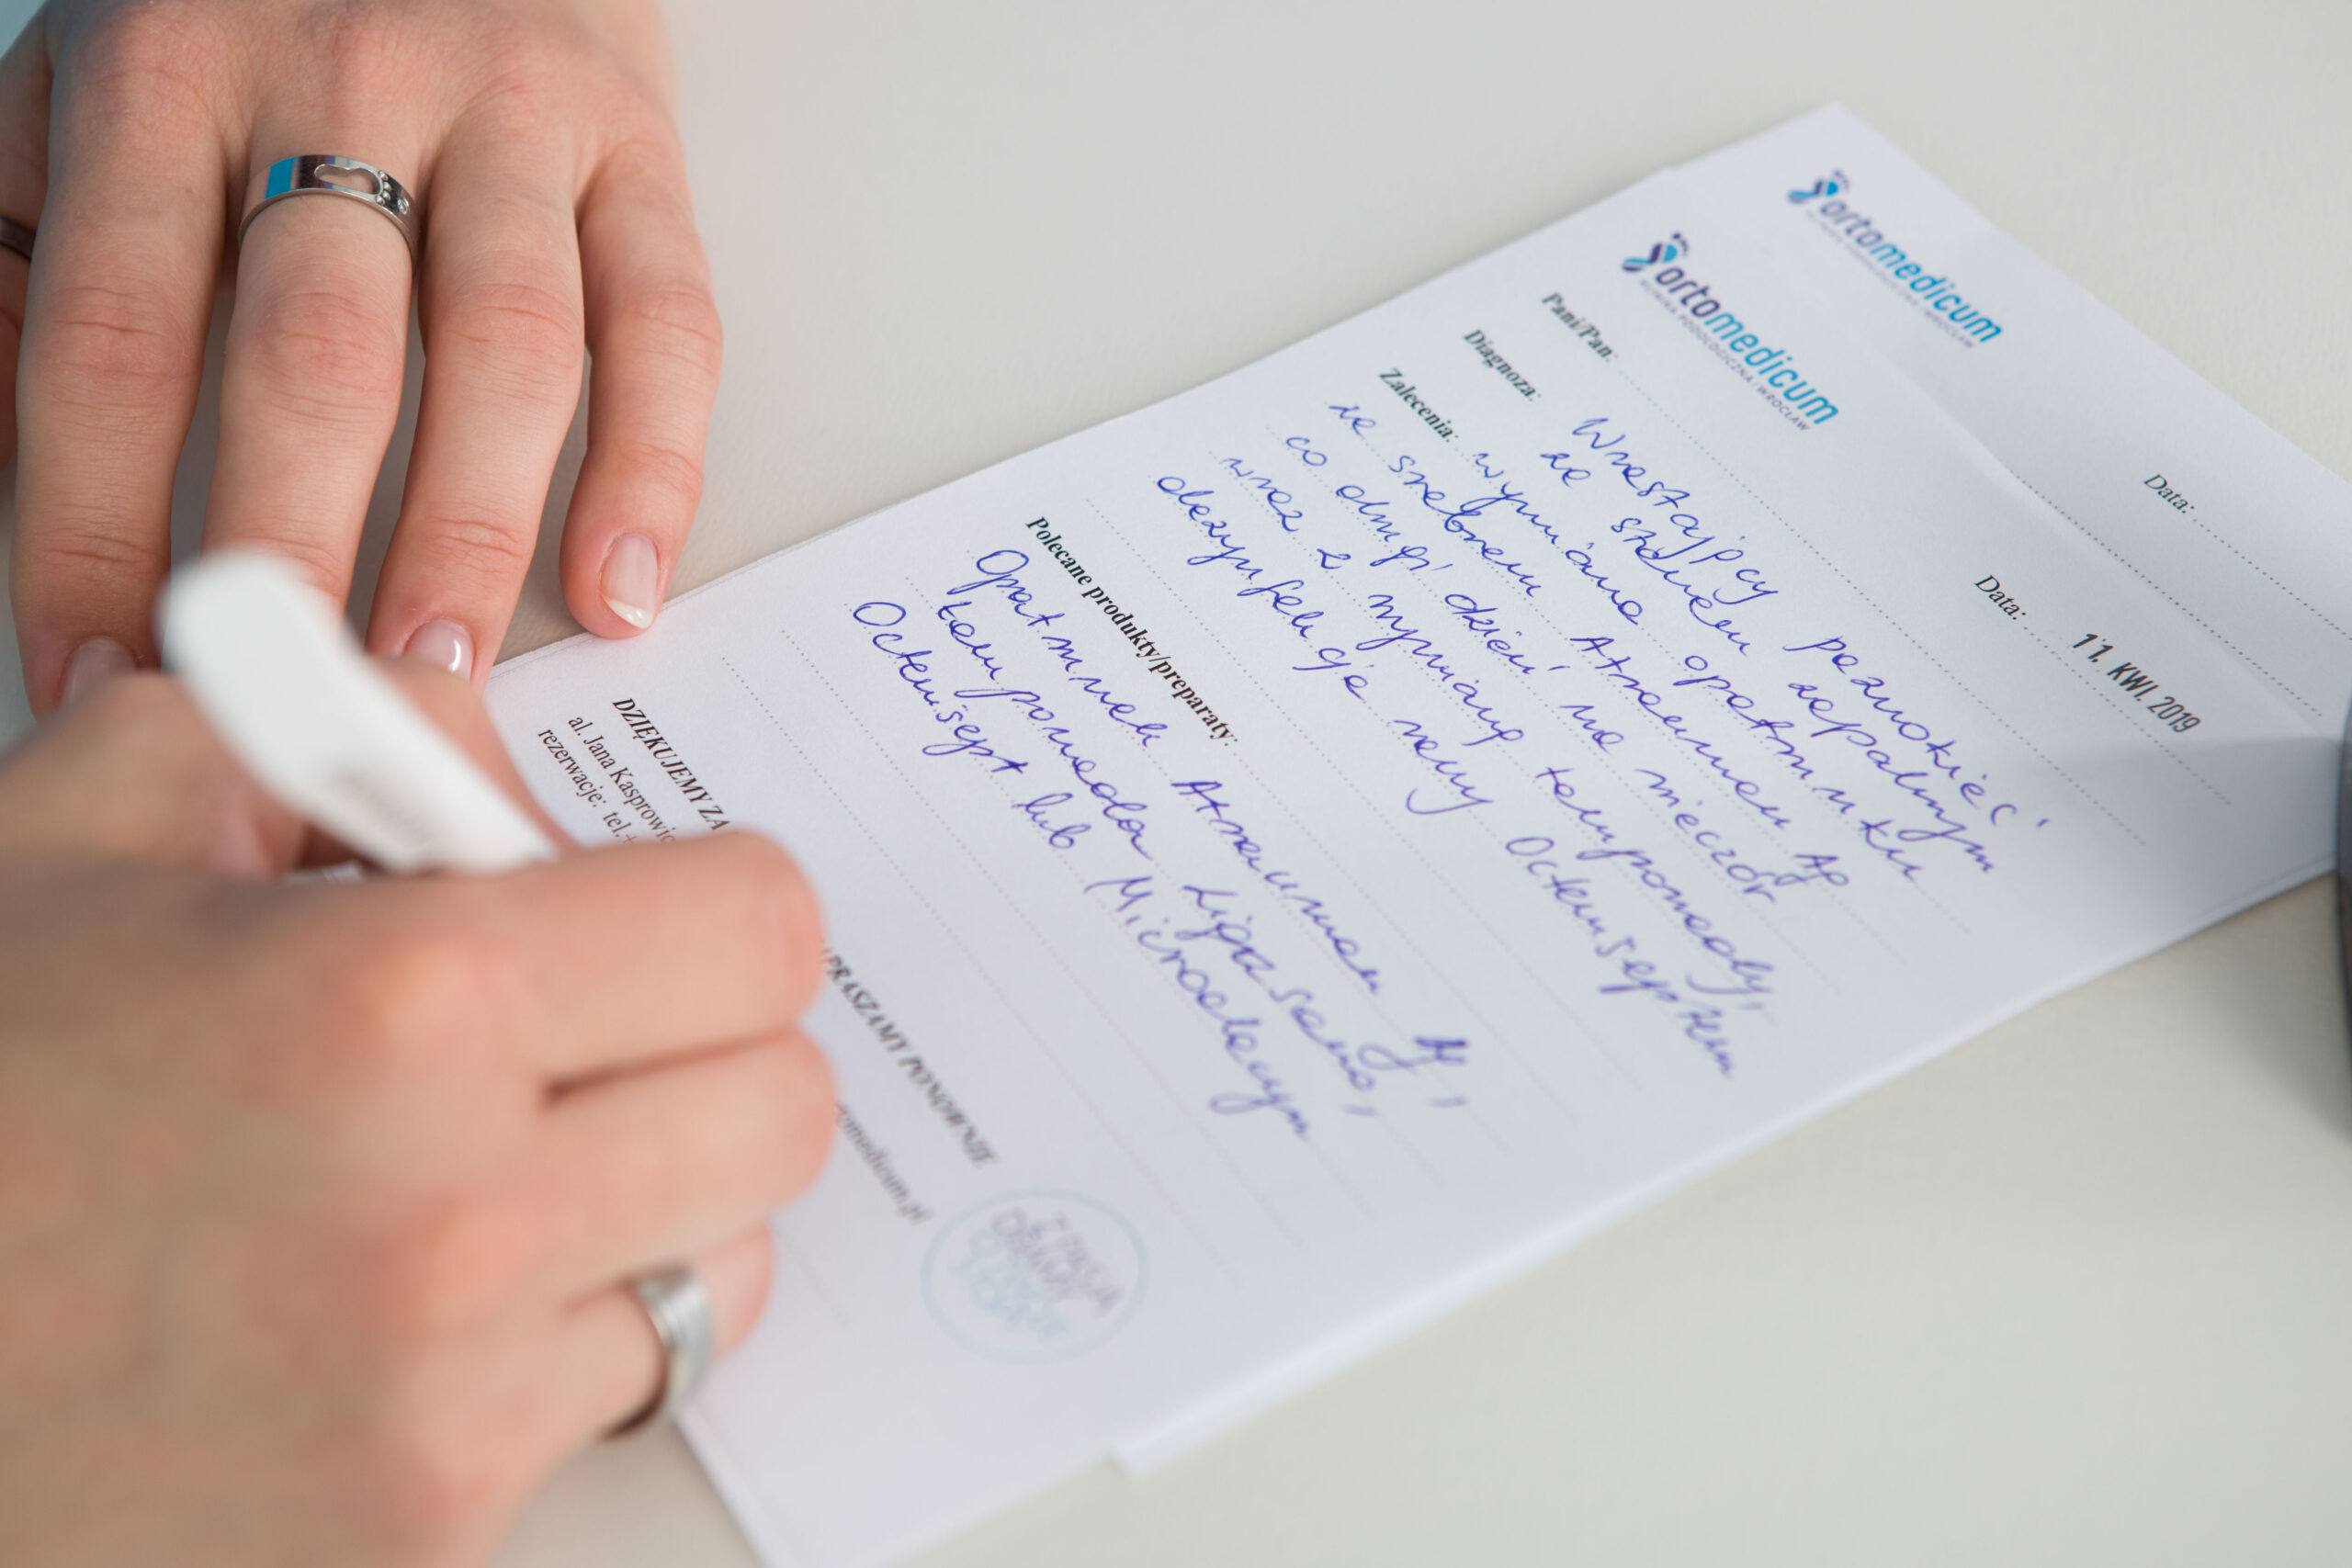 ortomedicum
Data:
ortomedicum
KLINIKA PODOLOGICZNA WROCŁAW
Data: 11. KWI. 2019
Pani/Pan:
Diagnoza: Wrastający paznokieć
ze stanem zapalnym
Zalecenia: wymiana opatrunku
ze srebrem Atrauman Ag
co drugi dzień na wieczór
wraz z wymianą tamponady,
dezynfekcja rany Octeniseptem
Polecane produkty/preparaty:
Opatrunek Atrauman Ag,
tamponada Ligasano,
Octenisept lub Microdacyn
DZIĘKUJEMY ZA
ZAPRASZAMY PONOWNIE
al. Jana Kasprowic
rezerwacje: tel.
omedicum.pl
Z PASJĄ